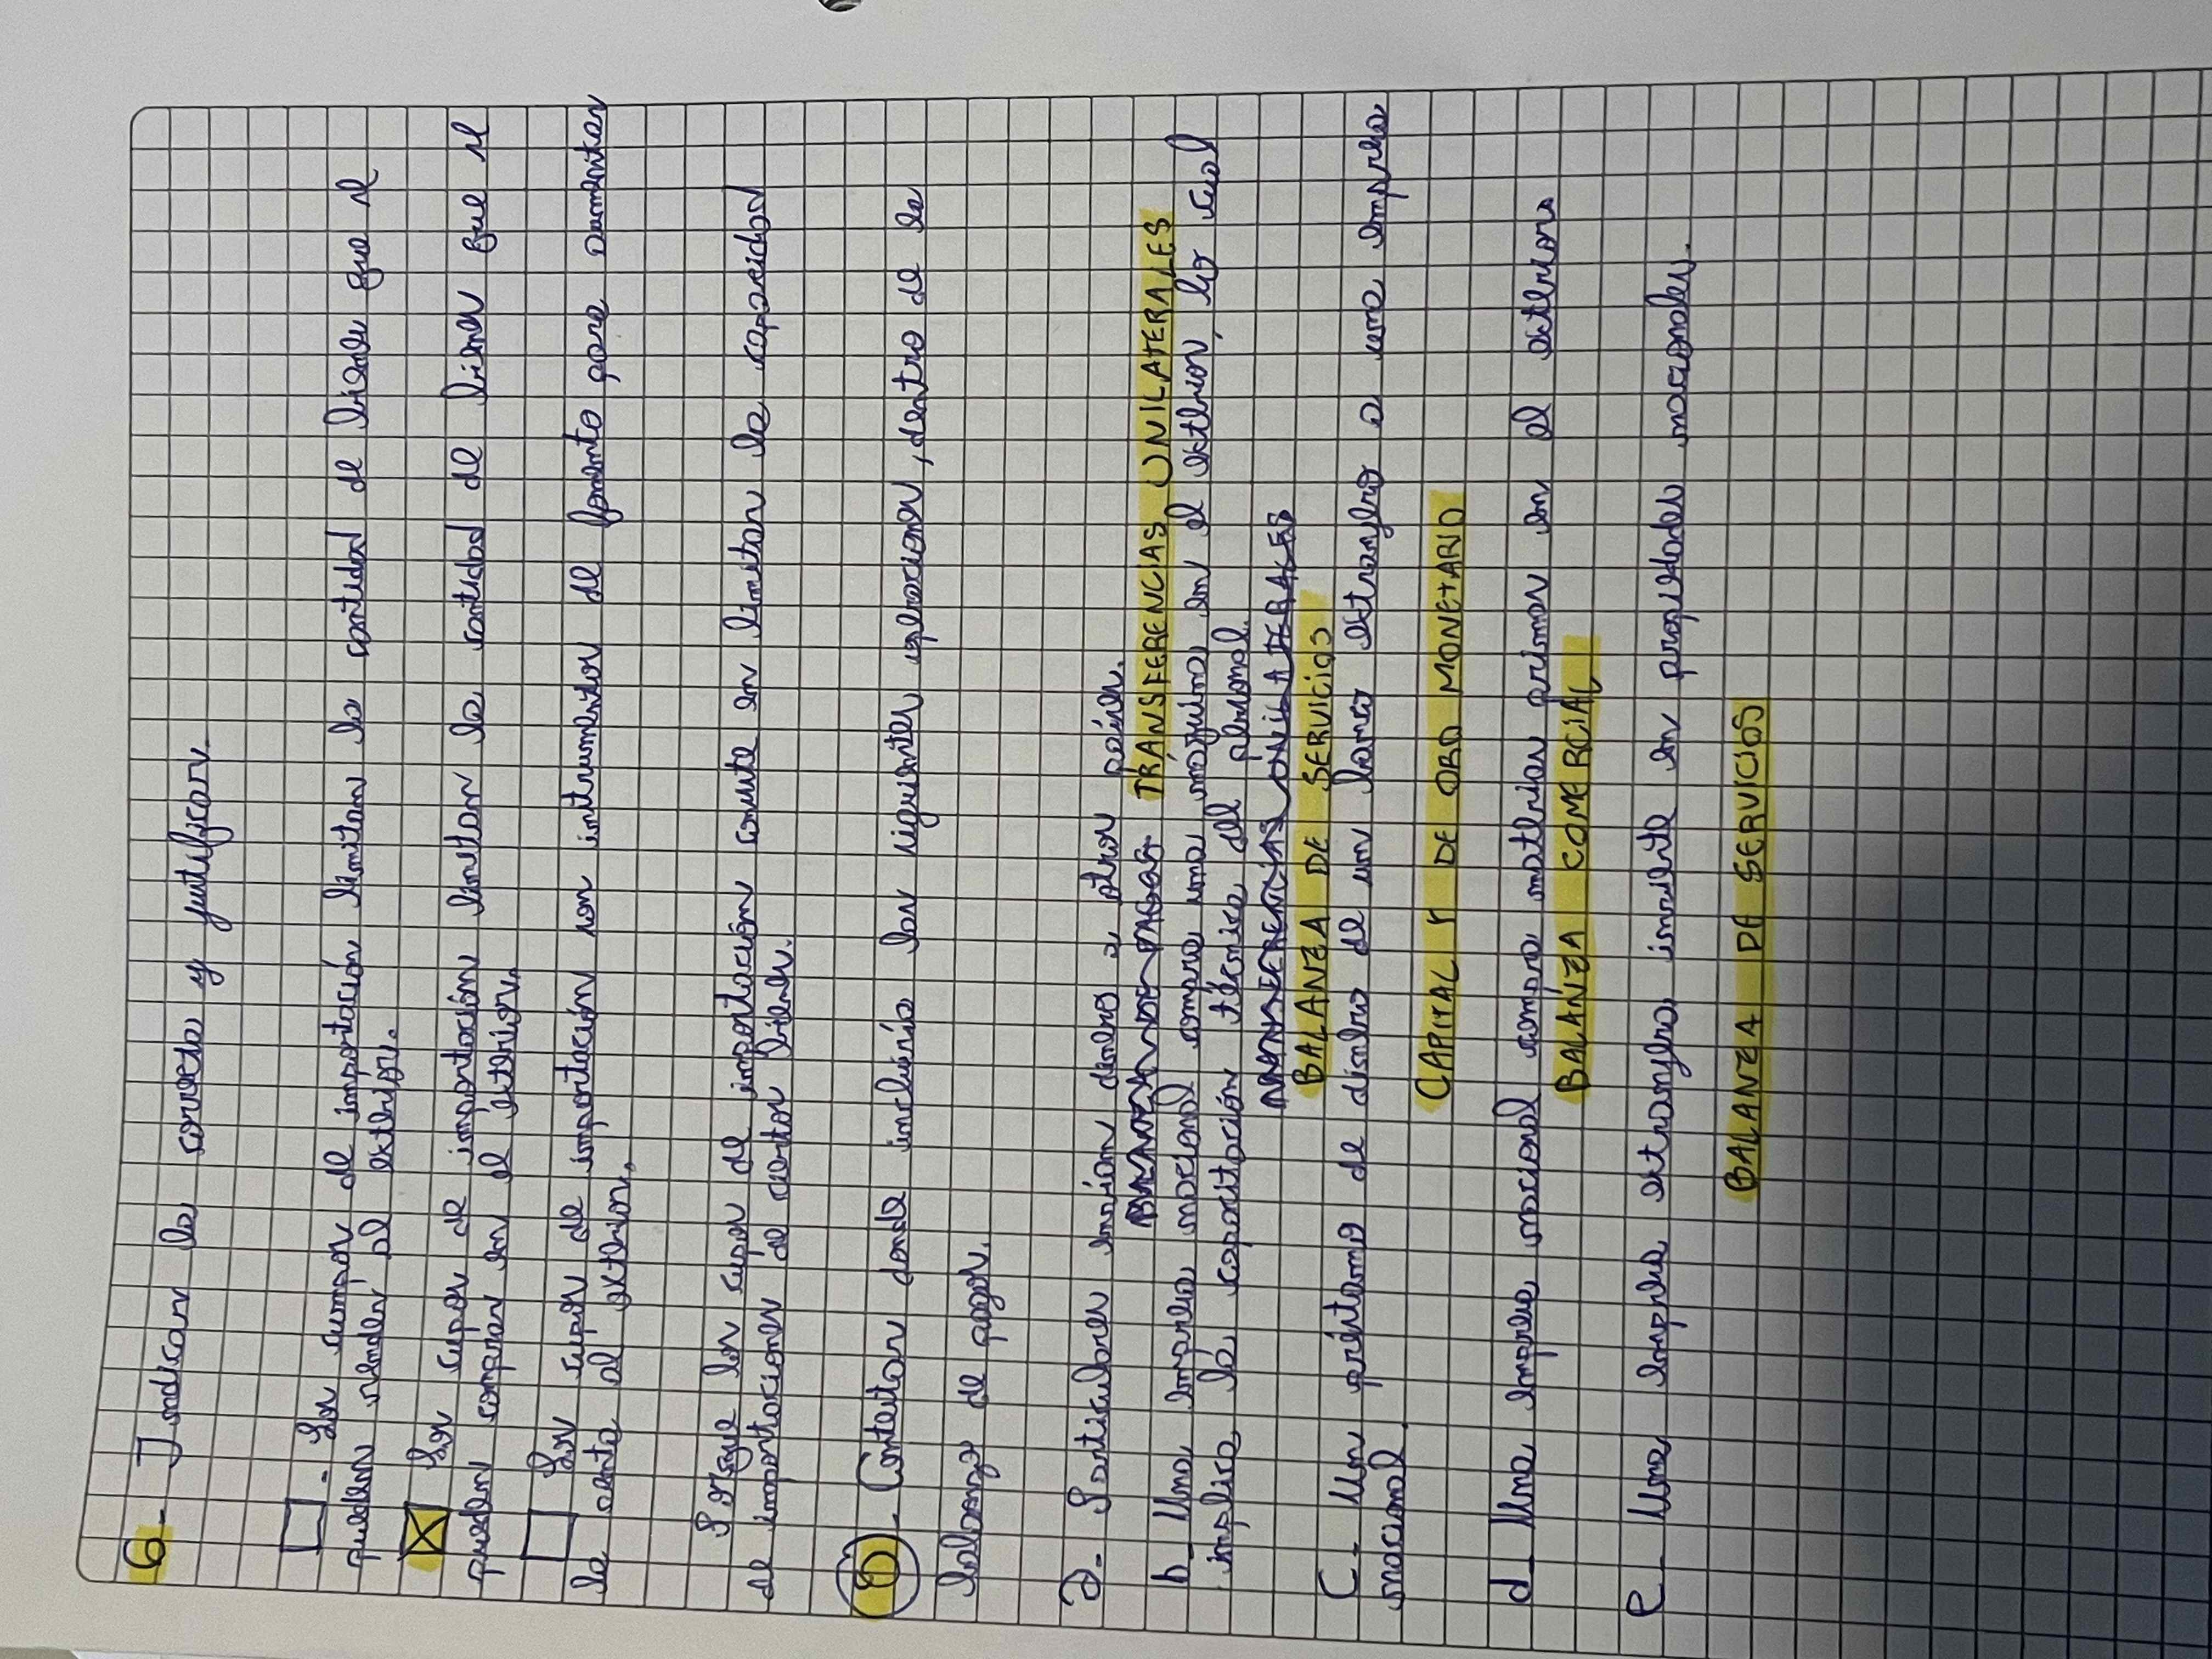 6- Indicar la correcta y justificar.
☐ - Los cupos de importación limitan la cantidad de bienes que se
pueden vender al exterior.
☒ Los cupos de importación limitan la cantidad de bienes que se
pueden comprar en el exterior.
☐ Los cupos de importación son instrumentos de fomento para aumentar
la venta al exterior.
Porque los cupos de importación consiste en limitar la capacidad
de importaciones de ciertos bienes.
- Contestar donde incluiría las siguientes operaciones, dentro de la
balanza de pagos.
a- Particulares envían dinero a otros países.
BALANZA DE PAGOS TRANSFERENCIAS UNILATERALES
b- Una empresa nacional compra una maquina en el exterior, lo cual
implica la capacitación técnica del personal.
TRANSFERENCIAS UNILATERALES
BALANZA DE SERVICIOS
C- Un préstamo de dinero de un banco extranjero a una empresa
nacional.
CAPITAL Y DE ORO MONETARIO
d- Una empresa nacional compra materias primas en el exterior
BALANZA COMERCIAL
e- Una empresa extranjera invierte en propiedades nacionales.
BALANZA DE SERVICIOS